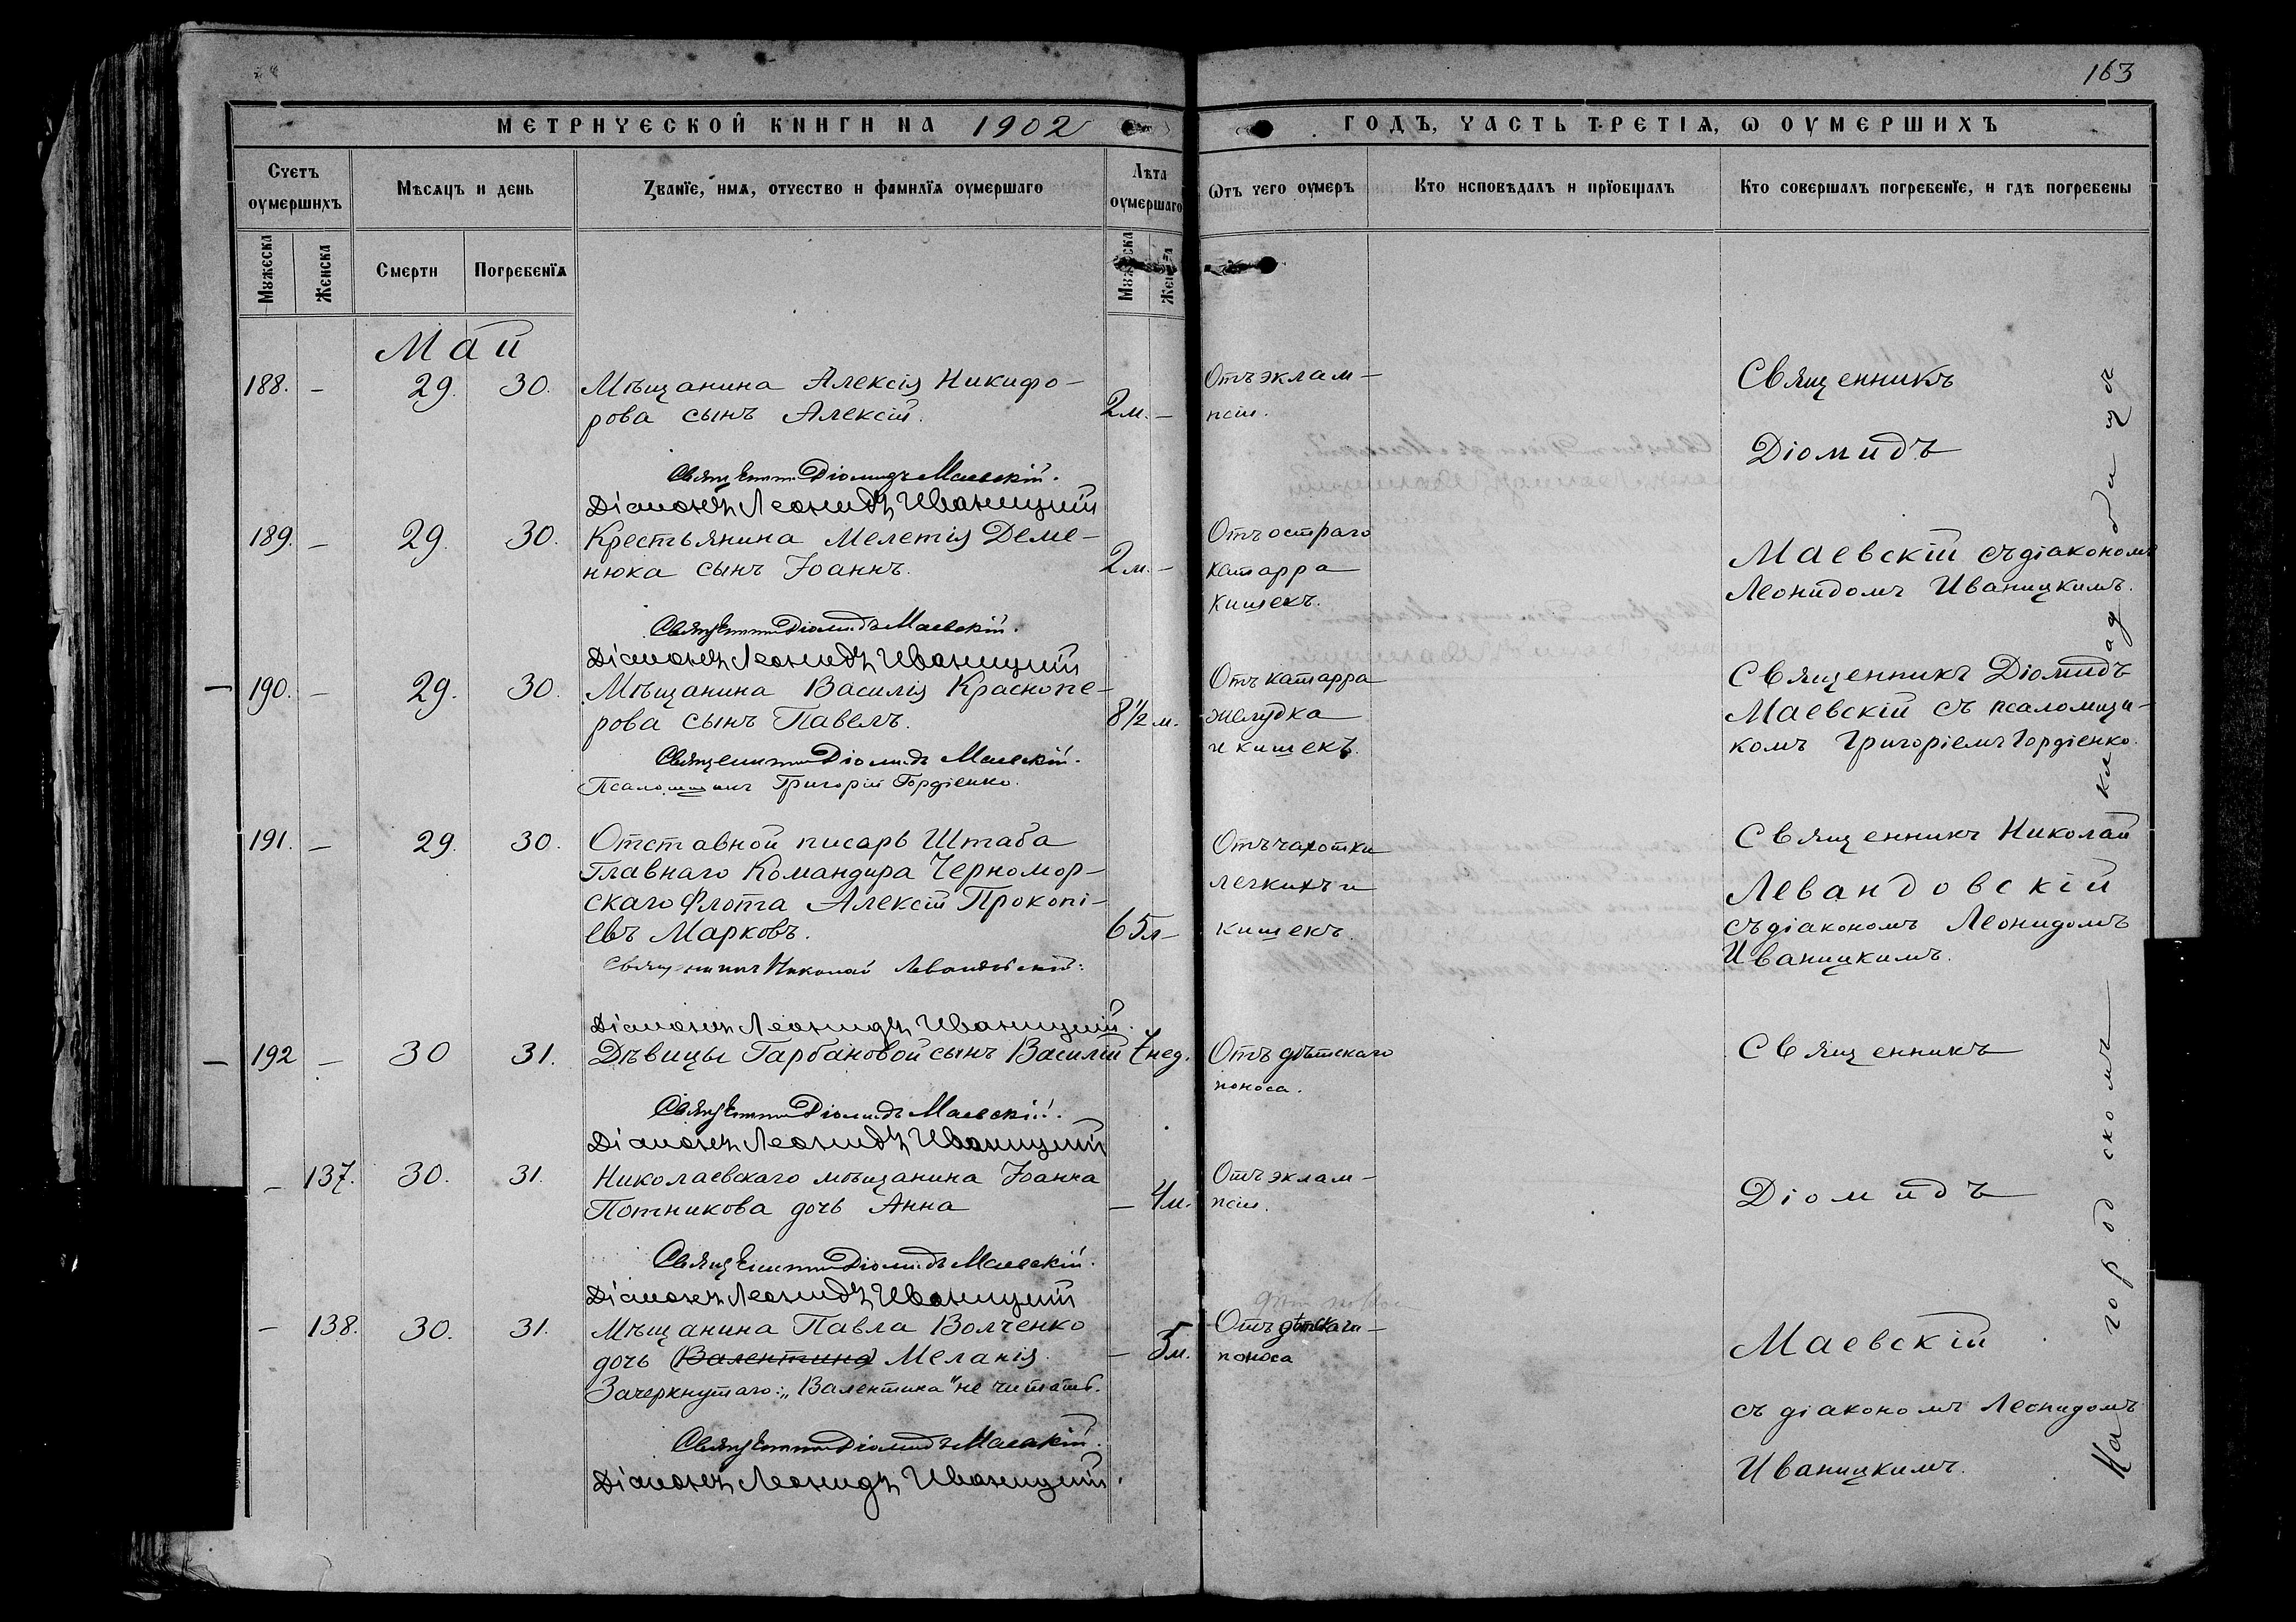 163
МЕТРИЧЕСКОЙ КНИГИ НА 1902 ГОДЪ, ЧАСТЬ ТРЕТІЯ, Ѡ ОУМЕРШИХЪ
Счетъ оумершихъ
Мѣсяцъ и день
Званїе, имя, отчество и фамилїя оумершаго
Лѣта оумершаго
Ѿтъ чего оумеръ
Кто исповѣдалъ и прїобщалъ
Кто совершалъ погребенїе, и гдѣ погребены
Мужеска
Женска
Смерти
Погребенїя
Мужеска
Женска
Май
188. – 29. 30. Мѣщанина Алексія Никифо-
рова сынъ Алексій. 2 м. –
Отъ эклам-
псіи.
Священникъ Діомидъ Маевскій.
Діаконъ Леонидъ Иваницкій
189. – 29. 30. Крестьянина Мелетія Деме-
нюка сынъ Іоаннъ. 2 м. –
Отъ остраго
катарра
кишекъ.
Священникъ Діомидъ Маевскій.
Діаконъ Леонидъ Иваницкій
Священникъ
Діомидъ
Маевскій съ діакономъ
Леонидомъ Иваницкимъ.
190. – 29. 30. Мѣщанина Василія Краснопе-
рова сынъ Павелъ. 8 1/2 м.
Отъ катарра
желудка
и кишекъ.
Священникъ Діомидъ Маевскій.
Псаломщикъ Григорій Гордіенко.
Священникъ Діомидъ
Маевскій съ псаломщи-
комъ Григоріемъ Гордіенко.
191. – 29. 30. Отставной писарь Штаба
Главнаго Командира Черномор-
скаго Флота Алексій Прокопі-
евъ Марковъ. 65 л –
Отъ чахотки
легкихъ и
кишекъ.
Священникъ Николай Левандовскій.
Діаконъ Леонидъ Иваницкій.
Священникъ Николай
Левандовскій
съ діакономъ Леонидомъ
Иваницкимъ.
192 – 30 31. Дѣвицы Гарбановой сынъ Василій 7 нед.
Отъ дѣтскаго
поноса.
Священникъ Діомидъ Маевскій.
Діаконъ Леонидъ Иваницкій
– 137. 30. 31. Николаевскаго мѣщанина Іоанна
Потникова дочь Анна – 4 м.
Отъ эклам-
псіи.
Священникъ Діомидъ Маевскій.
Діаконъ Леонидъ Иваницкій
– 138. 30. 31. Мѣщанина Павла Волченко
дочь (Валентина) Меланія. – 5 м.
Зачеркнутаго: „Валентина" не читать.
Отъ дѣтскаго
поноса
Священникъ Діомидъ Маевскій.
Діаконъ Леонидъ Иваницкій.
Священникъ
Діомидъ
Маевскій
съ діакономъ Леонидомъ
Иваницкимъ.
На городскомъ кладбищѣ